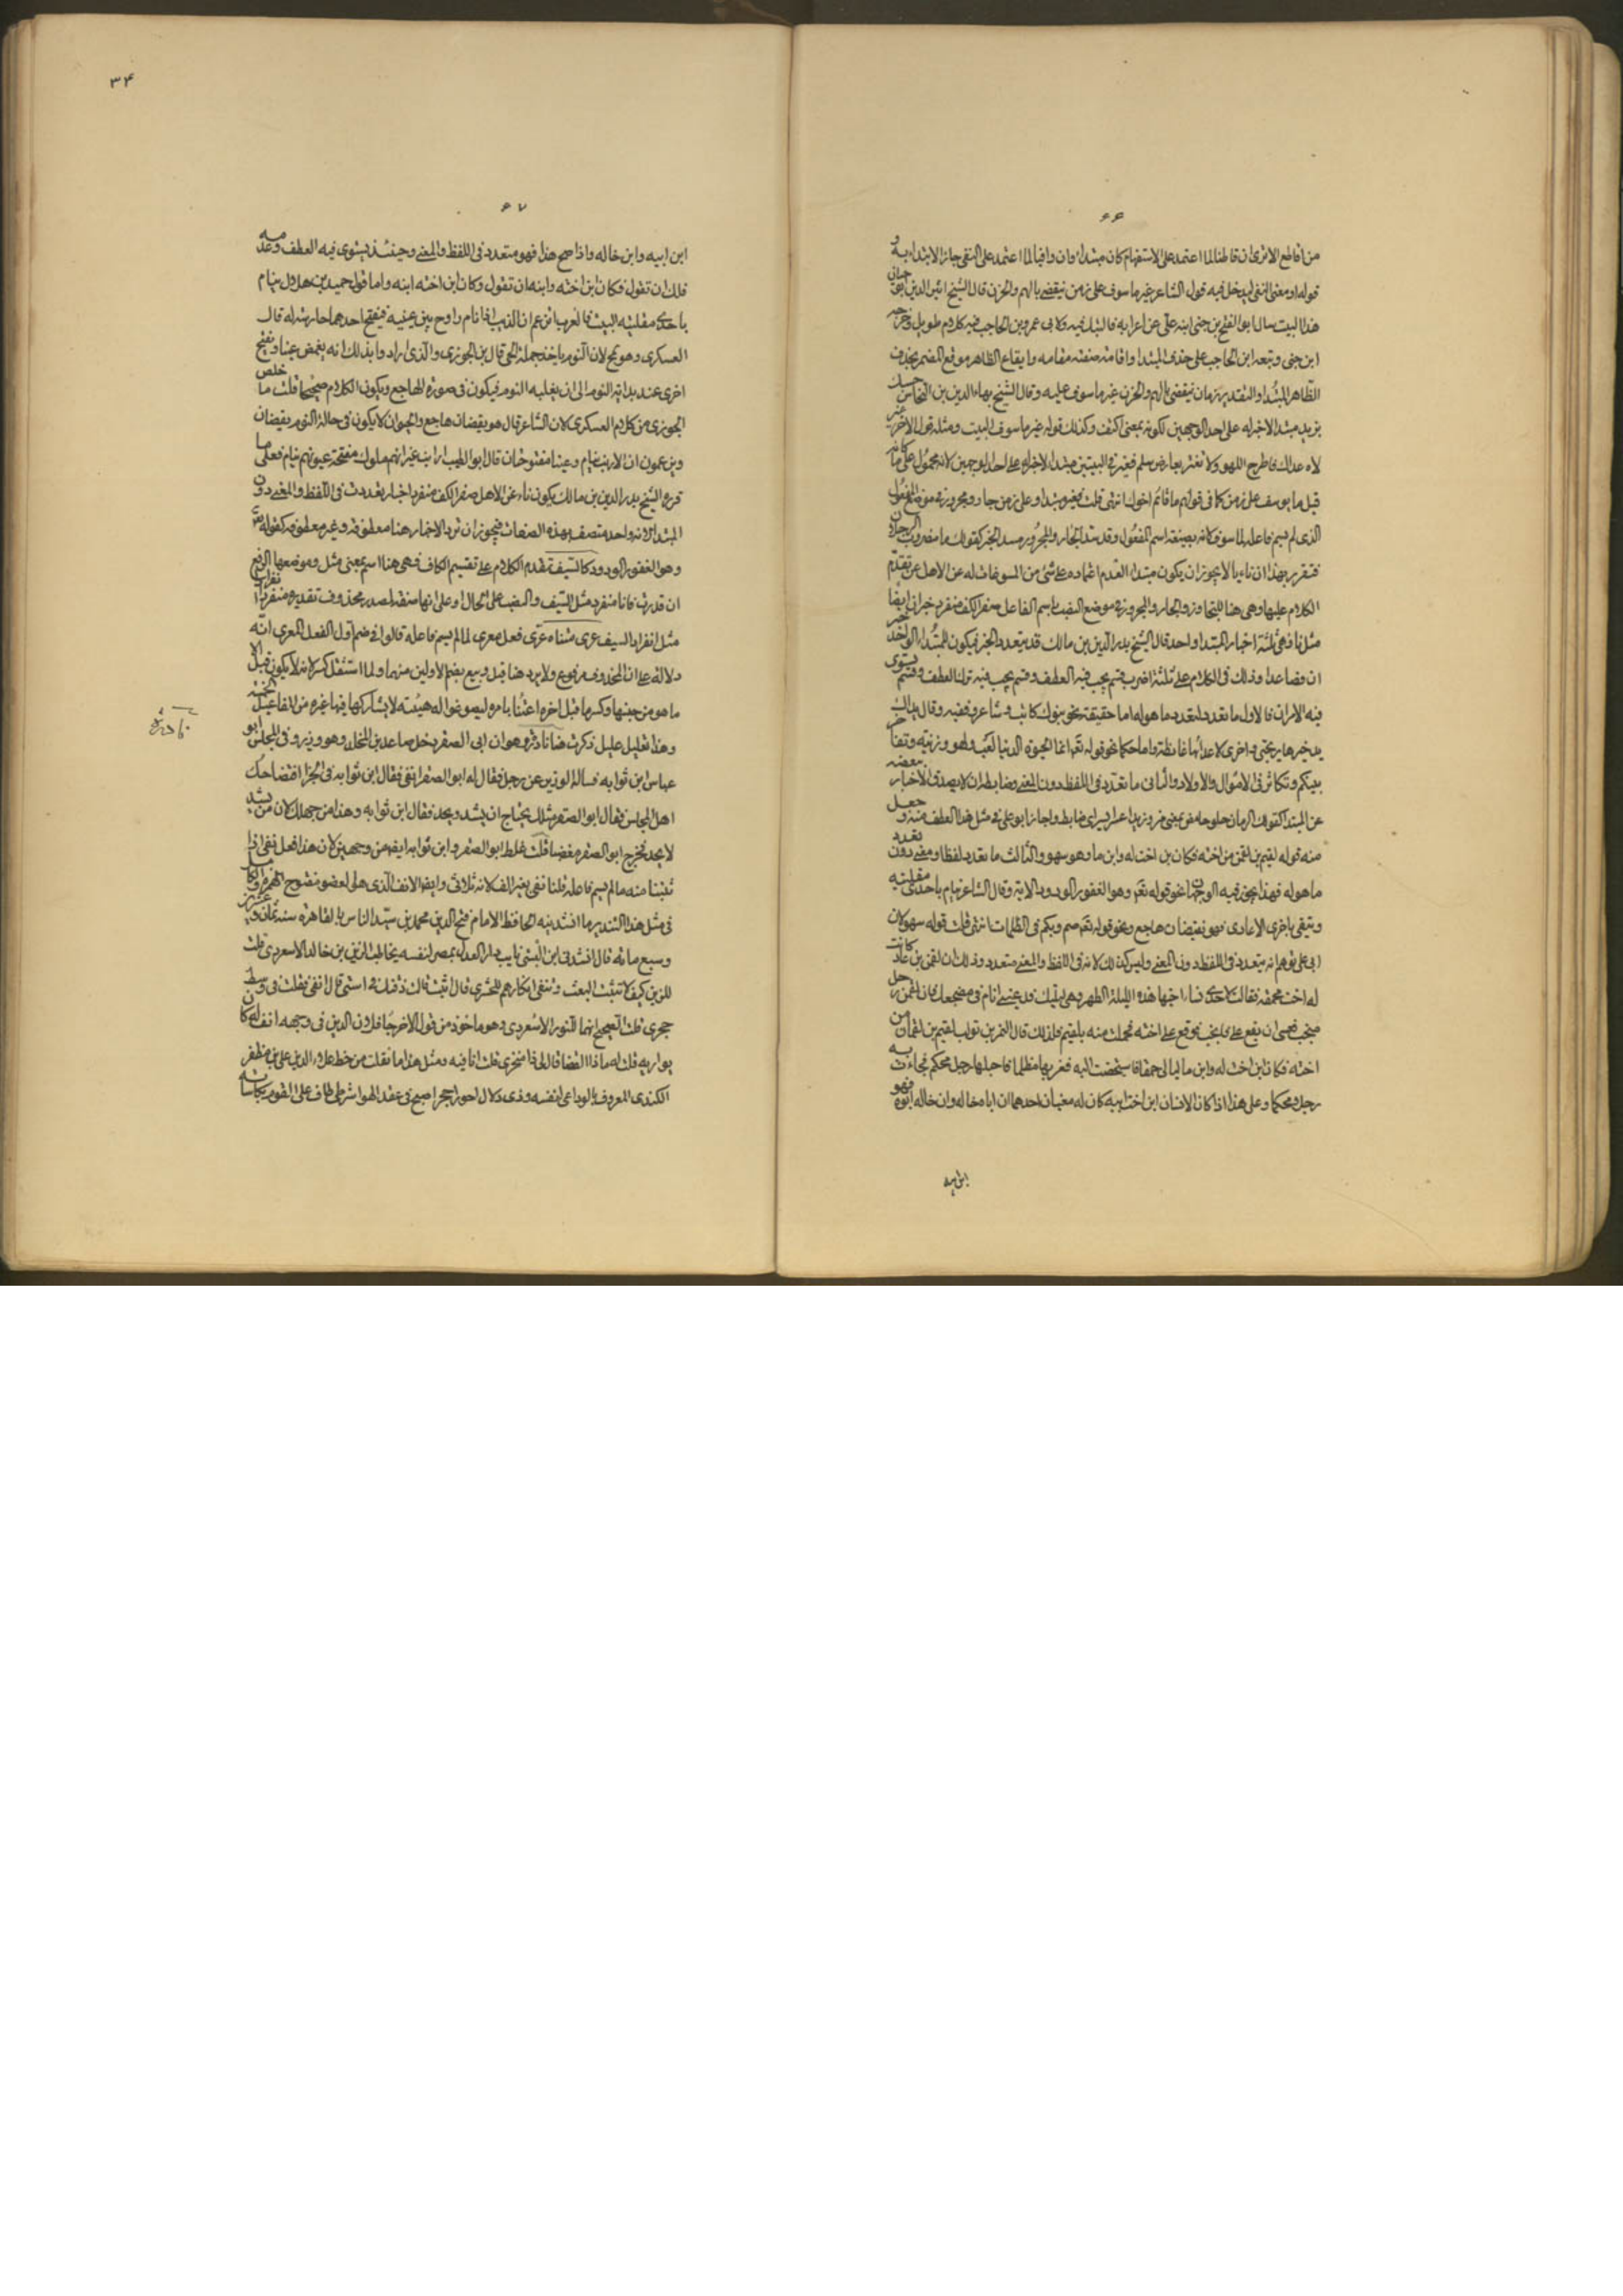 ۶۶
من اقاطع الا ترى ان قاطنا لما اعتمد على الاستفهام كان مبتداء وان وافيا لما اعتمد على النفى جاز الابتداء به و
قوله او معنى النفى ليدخل فيه قول الشاعر غير ماسوف على زمن ينقضى بالهم والحزن قال الشيخ اثير الدين ابو حيان
هذا البيت سال ابو الفتح بن جنى ابنه على عن اعرابه فاقبل فيه ولابى عمرو بن الحاجب فيه كلام طويل وخرجه
ابن جنى وتبعه ابن الحاجب على حذف المبتدا واقامة صفته مقامه وايقاع الظاهر موقع المضمر بحذف
الظاهر المبتدا والتقدير زمان ينقضى بالهم والحزن غير ماسوف عليه وقال الشيخ بهاء الدين بن النحاس
يزيد مبتدا لاخبر له على احد الوجهين لكونه بمعنى اكتف وكذلك قوله غير ماسوف البيت ومثله قول الاخر غير
لاه عداك فاطرح اللهو ولا تغتر بعارض سلم فغير فى البيتين مبتدا لاخبر له على احد الوجهين لانه محمول على ما كانه
قيل ما يوسف على زمن كما فى قولهم ما قائم اخوك انتهى قلت فغير مبتدا وعلى زمن جار ومجرور فى موضع المفعول
الذى لم يسم فاعله لماسوف لانه بصيغة اسم المفعول وقد سد الجار والمجرور مسد الخبر كقولك ما مضروب الرجلان
فتقرر بهذا ان ناء بالا يجوز ان يكون مبتدا لعدم اعتماده على شئ من المسوغات له عن الاهل عن تقدم
الكلام عليها وهى هنا للمجاوزة والجار والمجرور فى موضع النصب باسم الفاعل صفر الكف منفرد خبران ايضا
مثل ناء فهى ثلثة اخبار المبتدا واحد قال الشيخ بدر الدين بن مالك قد يتعدد الخبر فيكون للمبتدا الواحد خبر
ان فصاعدا وذلك فى الكلام على ثلثة اضرب قسم يجب فيه العطف وقسم يجب فيه ترك العطف وقسم يستوى
فيه الامران فالاول ما تعدد لتعدد ما هو له اما حقيقة نحو بنوك كاتب وشاعر وفقيه وقال
يداك يد خيرها يرتجى واخرى لاعدائها غائظة واما حكما نحو قوله تعالى انما الحيوة الدنيا لعب ولهو وزينة وتفاخر
بينكم وتكاثر فى الاموال والاولاد والثانى ما تعدد فى اللفظ دون المعنى وضابطه ان لا يصدق الاخبار ببعضه
عن المبتدا كقولك الرمان حلو حامض بمعنى مز وزيد اعسر ايسر اى ضابط واجاز ابو على فى مثل هذا العطف وجعل
منه قوله لقيم بن لقمن من اخته فكان بن اخت له وابنما وهو سهو والثالث ما تعدد لفظا ومعنى دون تعدد
ما هو له فهذا يجوز فيه الوجهان نحو قوله تعالى وهو الغفور الودود الاية وقال الشاعر ينام باحدى مقلتيه
ويتقى باخرى الاعادى فهو يقضان هاجع ونحو قوله تعالى صم وبكم فى الظلمات انتهى قلت قوله سهو لان
ابى على توهم انه متعدد فى اللفظ دون المعنى وليس كذلك لانه فى اللفظ والمعنى متعدد وذلك ان لقمن بن عاد كانت
له اخت محمقة فقالت لاحدى نساء اخيها هذه الليلة الطهر وهى ليلتك فدعينى انام فى مضجعك فان لقمن رجل
منجب فعسى ان يقع على فانجب فوقع على اخته فحملت منه بلقيم فلذلك قال النمر بن تولب لقيم بن لقمان من
اخته فكان ابن اخت له وابنما ليالى حمق فاستحصنت اليه فغر بها مظلما فاحبلها رجل محكم فجاءت به
رجلا محكما وعلى هذا اذا كان الانسان ابن اخت ابيه كان له معنيان احدهما ان اباه خاله وان خاله ابوه فهو
ابن ابيه
۳۴
۶۷
ابن ابيه وابن خاله واذا صح هذا فهو متعدد فى اللفظ والمعنى وحينئذ يستوى فيه العطف وعدمه
فلك ان تقول فكان ابن اخته وابنه ان تقول وكان ابن اخته ابنه واما قول حميد بن هلال ينام
باحدى مقلتيه البيت فالعرب تزعم ان الذيب اذا نام راوح بين عينيه فيفتح احدهما حارسة له قال
العسكرى وهو مح لان النوم ياخذ جملة الحى قال بن الجوزى والذى ارادوا بذلك انه يغمض عينا ويفتح
اخرى عند بداية النوم الى ان يغلبه النوم فيكون فى صورة الهاجع ويكون الكلام صحيحا قلت ما خلص
الجوزى من كلام العسكرى لان الشاعر قال هو يقضان هاجع والحيوان لا يكون فى حالة النوم يقضان
ويزعمون ان الارنب ينام وعيناه مفتوحتان قال ابو الطيب ارانب غير انهم ملوك مفتحة عيونهم نيام فعلى ما
قرره الشيخ بدر الدين بن مالك يكون ناء عن الاهل صفر الكف منفرد اخبار تعددت فى اللفظ والمعنى دون
المبتدا لانه واحد متصف بهذه الصفات فيجوز ان ترد الاخبار هنا معطوفة وغير معطوفة كقوله تعالى
وهو الغفور الودود كالسيف تقدم الكلام على تقسيم الكاف فهى هنا اسم بمعنى مثل وموضعها الرفع
ان قدرت فانا منفرد مثل السيف والنصب على الحال او على انها صفة لمصدر محذوف تقديره منفرد انفرادا
مثل انفراد السيف عرى متناه عرى فعل معرى لما لم يسم فاعله قالوا فى ضم اول الفعل المعرى انه
دلالة على ان المحذوف مرفوع ولا يرد هنا قيل وبيع بضم الاولين منهما ولما استثقل كسر لانه لا يكون قبل الا
ما هو من جنسها وكسر ما قبل اخره اعتناء بامره ليصوغوا له هيئة لا يشاركها فيها غيره من المفاعيل
وهذا تعليل عليل ذكرت هنا نادرة وهو ان ابى الصقر دخل صاعد بن المخلد وهو وزير وفى المجلس ابو
عباس ابن ثوابه فساله الوزير عن رجل فقال له ابو الصقر انفى فقال ابن ثوابه فى الخرا فتضاحك
اهل المجلس فقال ابو الصقر مثلك يحتاج ان يشد ويحد فقال ابن ثوابه وهذا من جهلك لان من يشد
لا يحد فخرج ابو الصقر مغضبا قلت غلط ابو الصقر وابن ثوابه ايضا من وجهين لان هذا فعل نفى اذا
بنينا منه ما لم يسم فاعله قلنا نفى بغير الف لانه ثلاثى وايضا الانف الذى هو العضو مفتوح الهمزة
فى مثل هذا التندير ما انشدنيه الحافظ الامام فتح الدين محمد بن سيد الناس بالقاهرة سنة ثمان وعشرين
وسبع مائه قال انشدنى ابن البستى نايب دار العدل بمصر لنفسه يخاطب الزين بن خالد الاسعردى قلت
للزين كيف لا تثبت البعث وتنفى انكارهم للحشر قال اثبت قالت ذقنك فى استى قال انفى فقلت فى وسط
جحرى قلت الصحيح انهما للنور الاسعردى وهو ماخوذ من قول الاخر جافلان الدين فى وجهه انف له كان
يواريه قلت له ماذا القضا قال لى ذا منخرى قلت انا فيه ومثل هذا ما نقلت من خط علاء الدين على بن مظفر
الكندى المعروف بالوداعى لنفسه وذى دلال احور احجر اصبح فى عقد الهوا شرطى طاف على القوم بكاساته